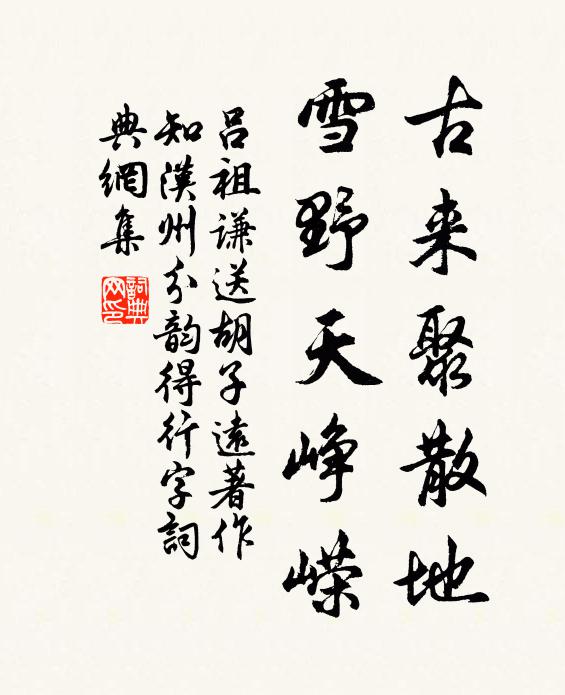 古来聚散地
雪野天峥嵘
吕祖謙送胡子遠著作
知漢州分韵得行字詞
典網集
詞典网印